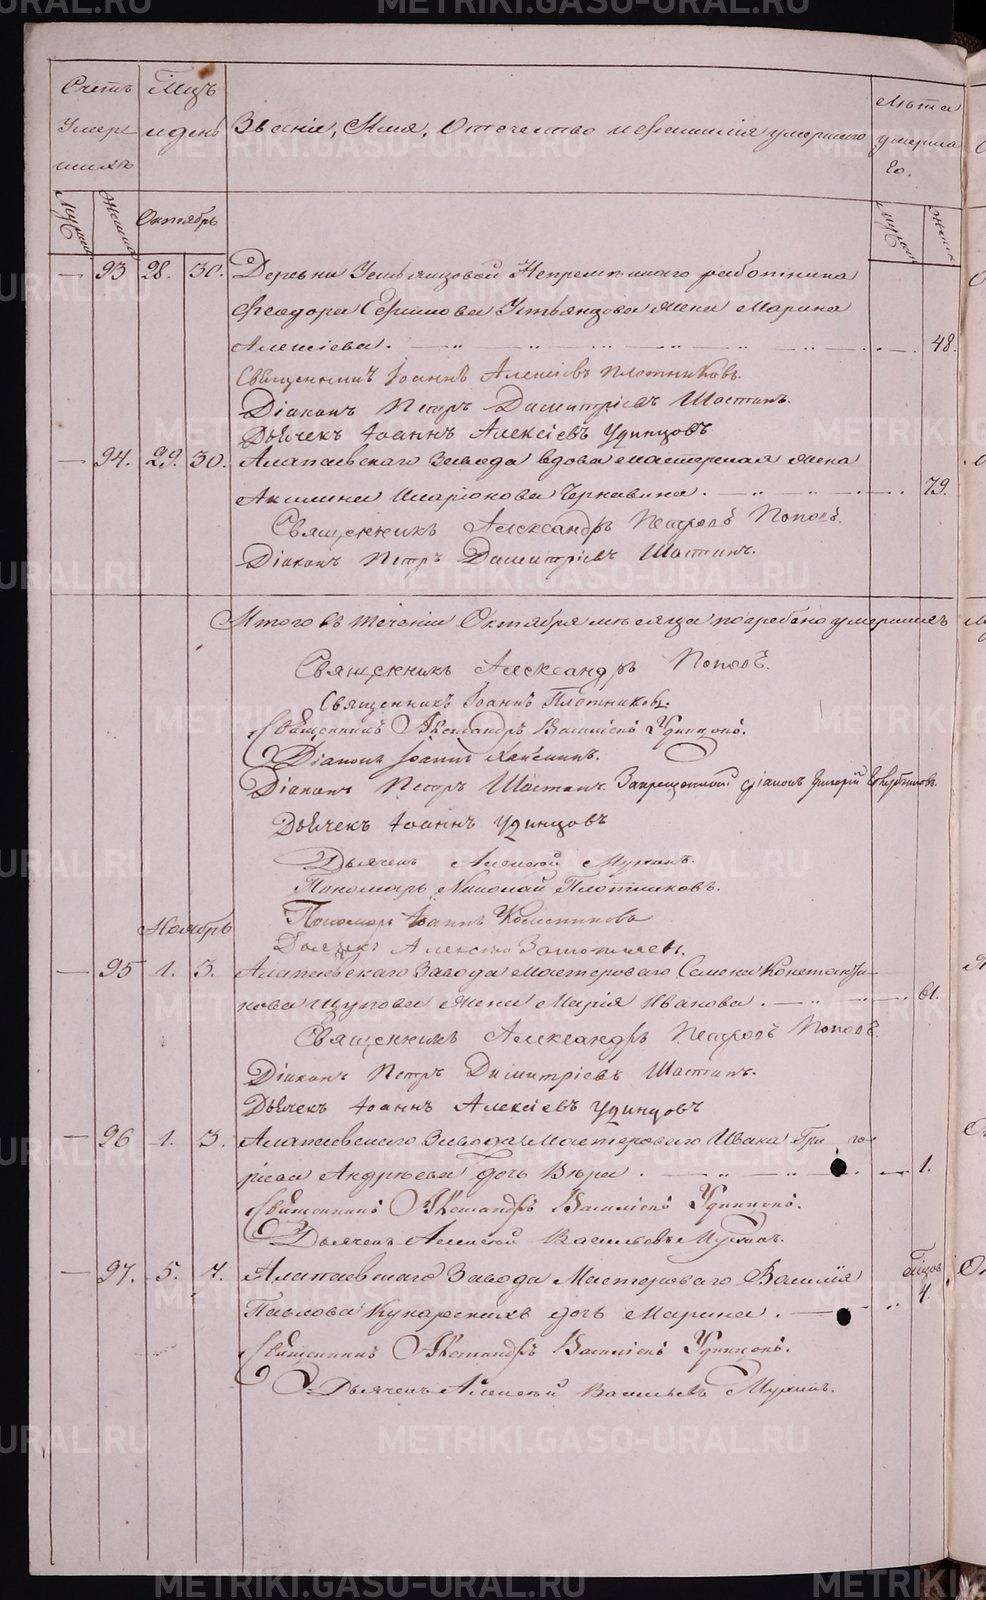 Счетъ Мцъ
Умер- и день Званіе, Имя, Отечество и фамилія умершаго Лѣта
шихъ умерша
го.
Муж. Женск. Октябрь Муж. Женск.
— 93 28. 30. Деревни Устьянцовой Непремѣннаго работника
Феодора Устьянцова жена Марина
Алексіева. 48.
Священникъ Іоаннъ Алексіевъ Плотниковъ.
Діаконъ Петръ Димитріевъ Шастинъ.
Дьячекъ Іоаннъ Алексіевъ Удинцовъ
— 94. 29. 30. Алапаевскаго Завода вдова мастерская жена
Акилина Иларіонова Чернавина. 79.
Священникъ Александръ Петровъ Поповъ.
Діаконъ Петръ Димитріевъ Шастинъ.
Итого въ теченіи Октября мѣсяца погребено умершихъ
Священникъ Александръ Поповъ.
Священникъ Іоаннъ Плотниковъ.
Священникъ Александръ Василіевъ Удинцовъ.
Діаконъ Іоаннъ
Діаконъ Петръ Шастинъ. Запрещенный діаконъ Григорій
Дьячекъ Іоаннъ Удинцовъ
Дьячекъ Алексій Мухинъ.
Пономарь Николай Плотниковъ.
Ноябрь Пономарь Іоаннъ
Дьячекъ
— 95 1. 3. Алапаевскаго Завода мастероваго Семена Константи-
нова Шупова жена Марія Иванова. 61.
Священникъ Александръ Петровъ Поповъ.
Діаконъ Петръ Димитріевъ Шастинъ.
Дьячекъ Іоаннъ Алексіевъ Удинцовъ
— 96 1. 3. Алапаевскаго Завода Мастероваго Ивана Григо-
ріева Андрѣева дочь Вѣра. 1.
Священникъ Александръ Василіевъ Удинцовъ.
Дьячекъ Алексій Васильевъ Мухинъ.
— 97. 5. 7. Алапаевскаго Завода Мастероваго Василія
Павлова Кукарскихъ дочь Марина. 4
Священникъ Александръ Василіевъ Удинцовъ.
Дьячекъ Алексій Васильевъ Мухинъ.
METRIKI.GASO-URAL.RU